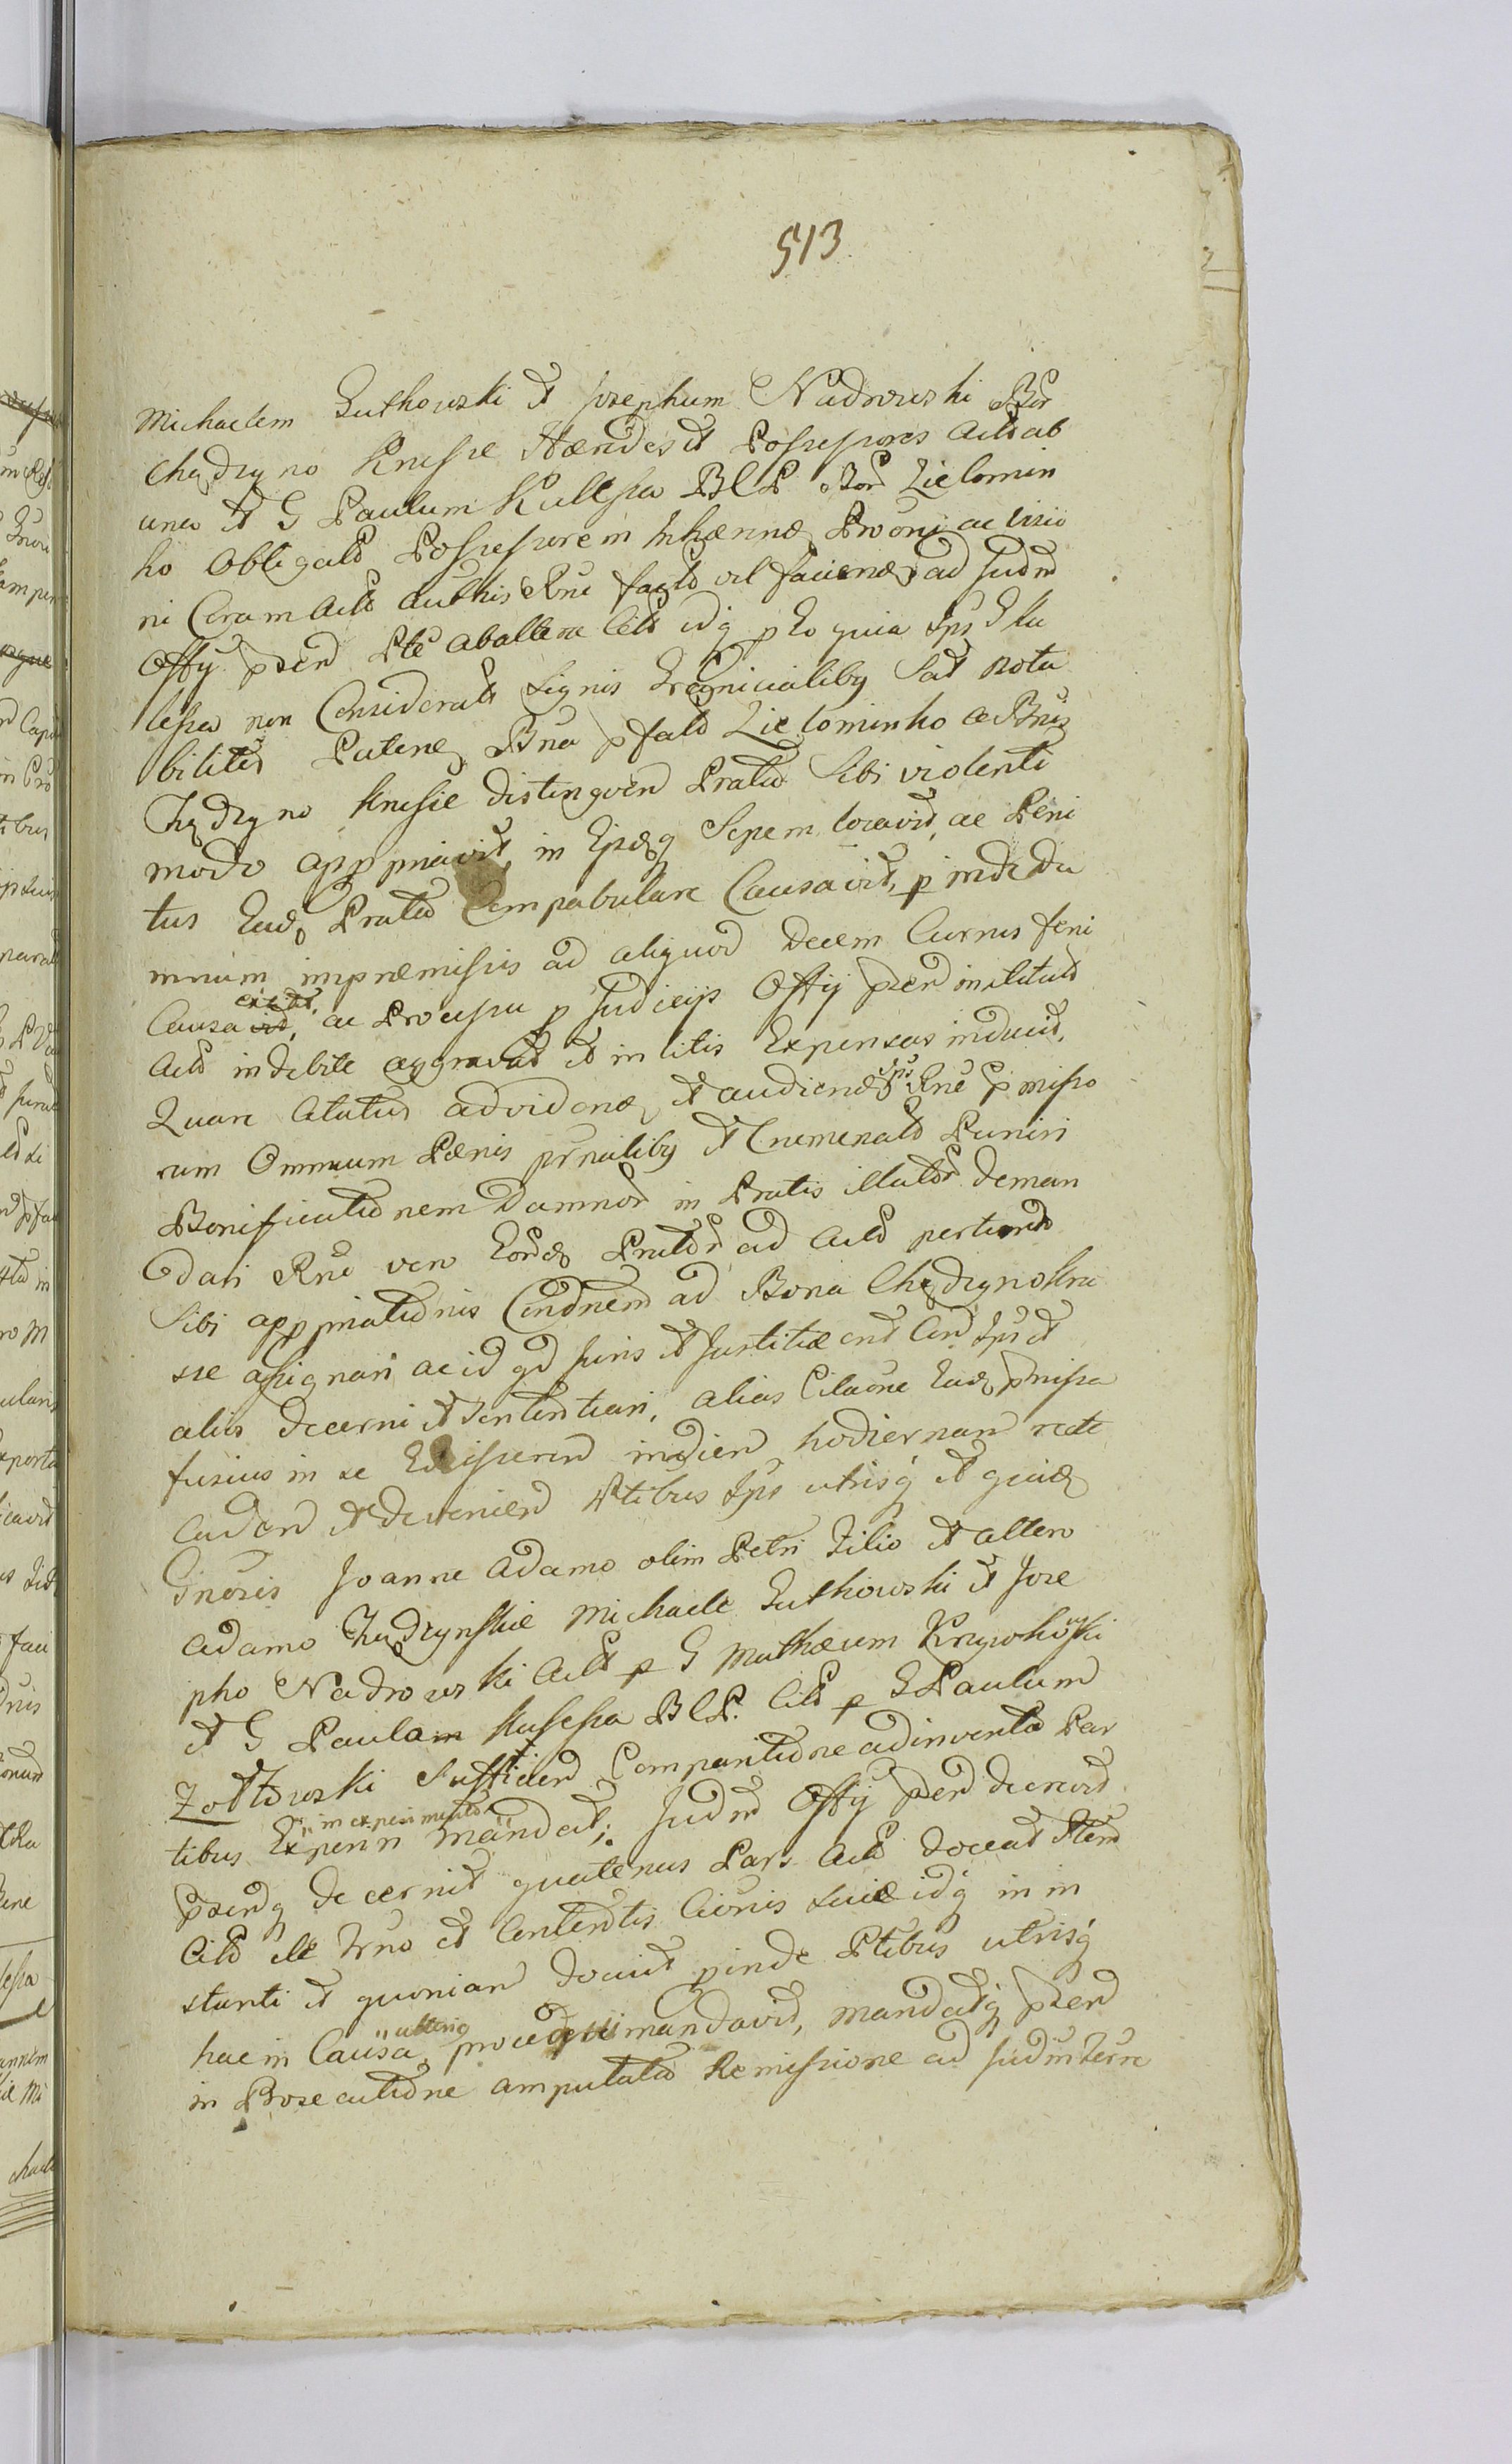 513
Michaelem Gutkowski et Josephum Nadrowski Bor
Chądzyno Knesie Hæredes et Possessores Act ab
una et G Paulum Kullesza BCP Bor Zielomin
ko Obligat Possessorem inhærend Prooni ac visio
ni Coram Act Authis Rne fact vel faciend ad Judm
Offij pzen Pte ab altera Cit idq p Eo quia Ips G Ku
lesza non Considerat Signis Granicialiby Sat nota
biliter Patend Bna pfato Zielominko a Bnis
Chądzyno Knesie distinguen Prata Sibi violenti
modo appropriavit, in Ejsdq Sepem locavit, ac Peni
tus Ead Prata Compabulare Causavit, p inde Da
mnum in præmissis ad aliquod decem Currus feni
Causavit, ac Processu p Judicijs Offij pzen institut
Act indebite aggravat et in litis Expensas inducit,
Quare Citatus ad vidend et audiend Ips Rne pmisso
rum Omnium Pænis prnalibg et Cnemenato Puniri
Bonificationem Damnor in Pratis illator deman
dari Rne vero Eord Prator ad Act pertinen
Sibi appropriationis Condnem ad Bona Chądzyno Kne
sie assignari ac id qd Juris et Justitiæ ent Cir Ips et
alis decerni et sententiari, alias Citaone Ead pmissa
fusius in se Edisseren in dien hodiernam recte
Caden et devenien Ptibus Ips utrisq et quid
Gnosis Joanne Adamo olim Petri Filio et altero
Adamo Chądzynskie Michaele Gutkowski et Jose
pho Nadrowski Act p G Mathæum Krzywkowski
et G Paulam Kulesza BCP. Cit p G Paulum
Zołtowski Sufficien Comparitione adinventa Par
tibus Experin in experimento mandat; Judm Offij pzen decrevit
pzenq decernit quatenus Pars Act doceat Ptem
Cit de Trno et Contentis Cionis suæ idq in in
stanti et quoniam docuit pinde Ptibus utrisq
hac in Causa ulterius procedere mandavit, mandatq pzen
in Prosecutione amputata Remissione ad Judm Terre